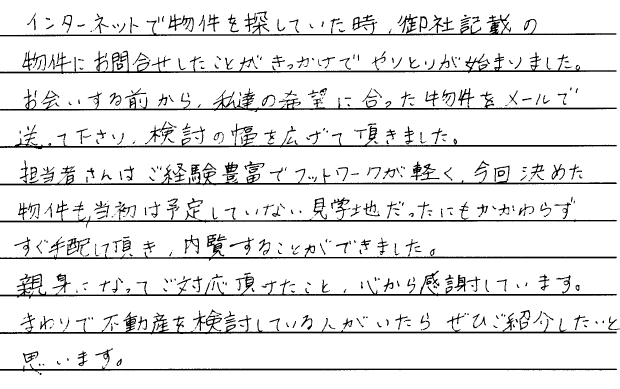 インターネットで物件を探していた時、御社記載の
物件にお問合せしたことがきっかけで やりとりが始まりました。
お会いする前から、私達の希望に合った物件をメールで
送って下さり、検討の幅を広げて頂きました。
担当者さんはご経験豊富でフットワークが軽く、今回決めた
物件も、当初は予定していない見学地だったにもかかわらず、
すぐ手配して頂き、内覧することができました。
親身になってご対応頂けたこと、心から感謝しています。
まわりで不動産を検討している人がいたら ぜひご紹介したいと
思います。